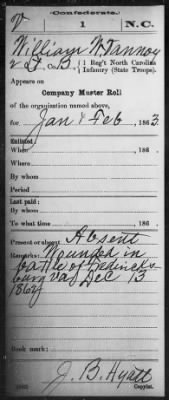 (Confederate.)
V 1 N.C.
William W. Vannoy
2d Lt, Co. B, 1 Reg't North Carolina
Infantry (State Troops).
Appears on
Company Muster Roll
of the organization named above,
for Jan & Feb, 1863
Enlisted:
When , 186 .
Where
By whom
Period
Last paid:
By whom
To what time , 186 .
Present or absent Absent
Remarks: Wounded in
battle of Fredericks
burg Va, Dec 13
1862
Book mark:
J. B. Hyatt
Copyist.